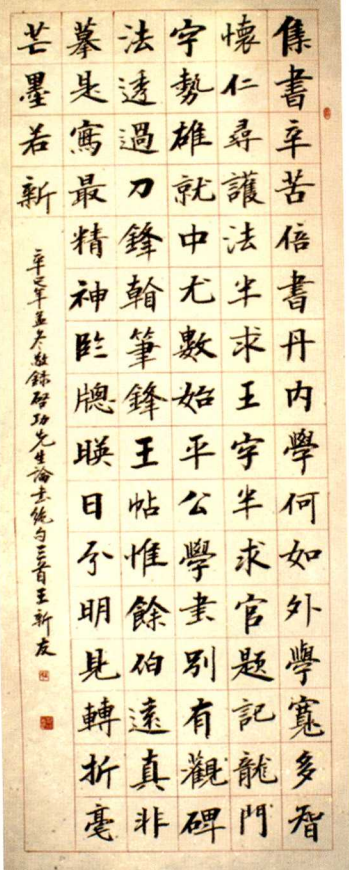 集書辛苦倍書丹內學何如外學寬多智
懷仁尋護法半求王字半求官題記龍門
字勢雄就中尤數始平公學書別有觀碑
法透過刀鋒看筆鋒王帖惟餘伯遠真非
摹是寫最精神臨牕暎日分明見轉折毫
芒墨若新
辛巳年孟冬敬錄啓功先生論書絕句三首王新友